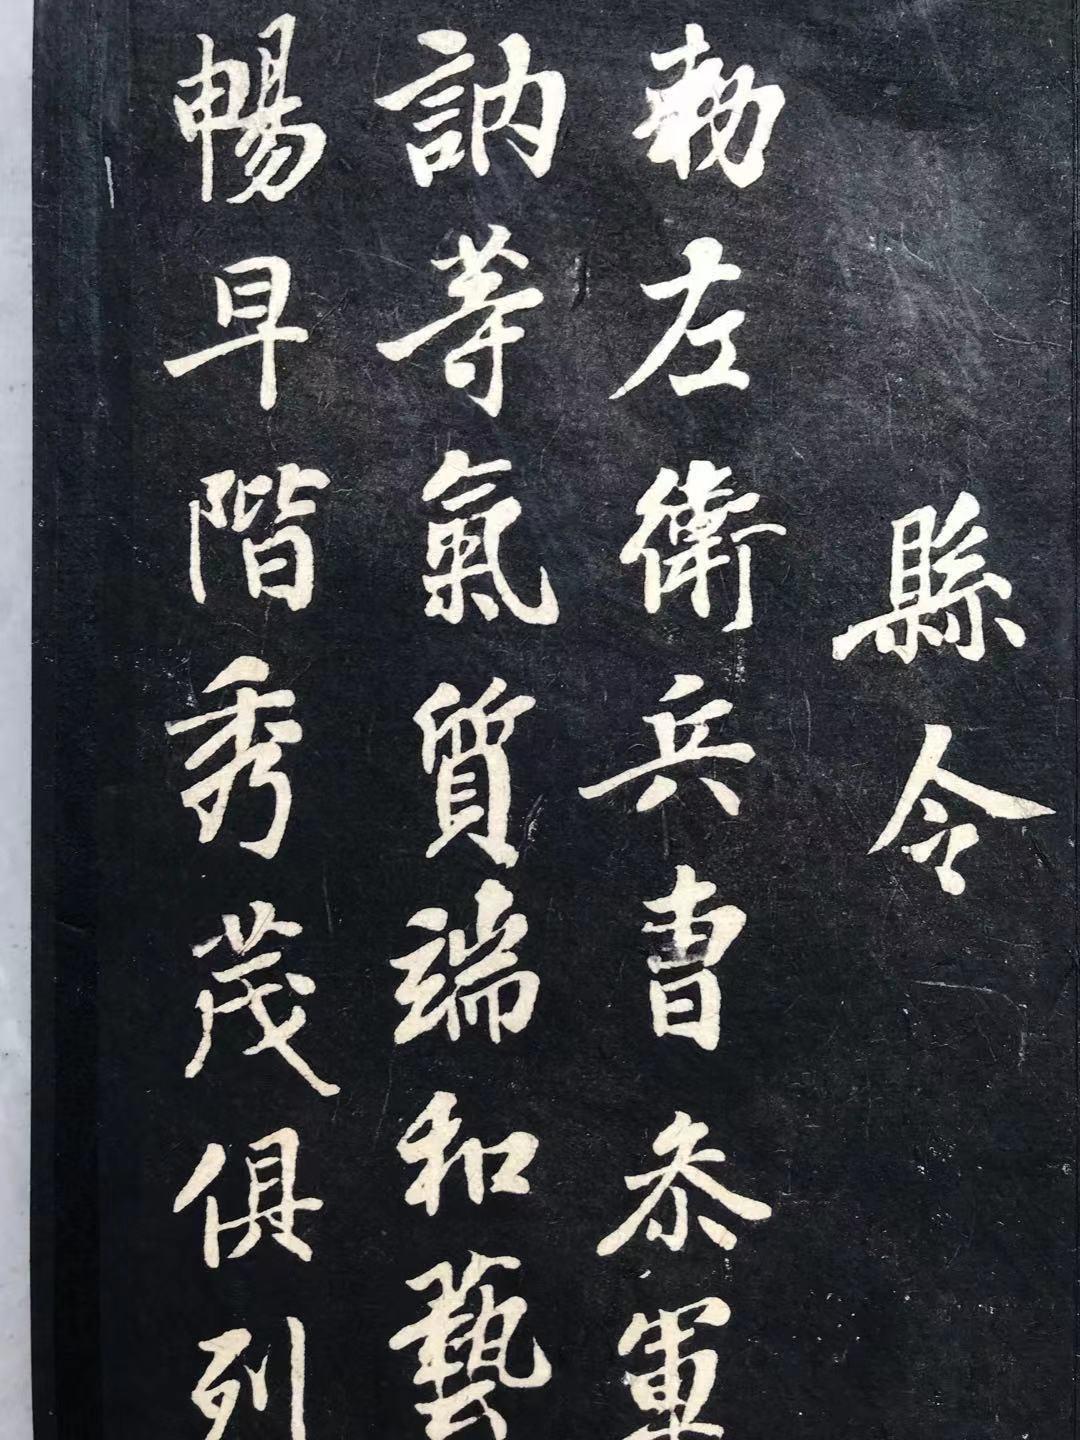 縣令
勅左衛兵曹叅軍
訥等氣質端和藝
暢早階秀茂俱列